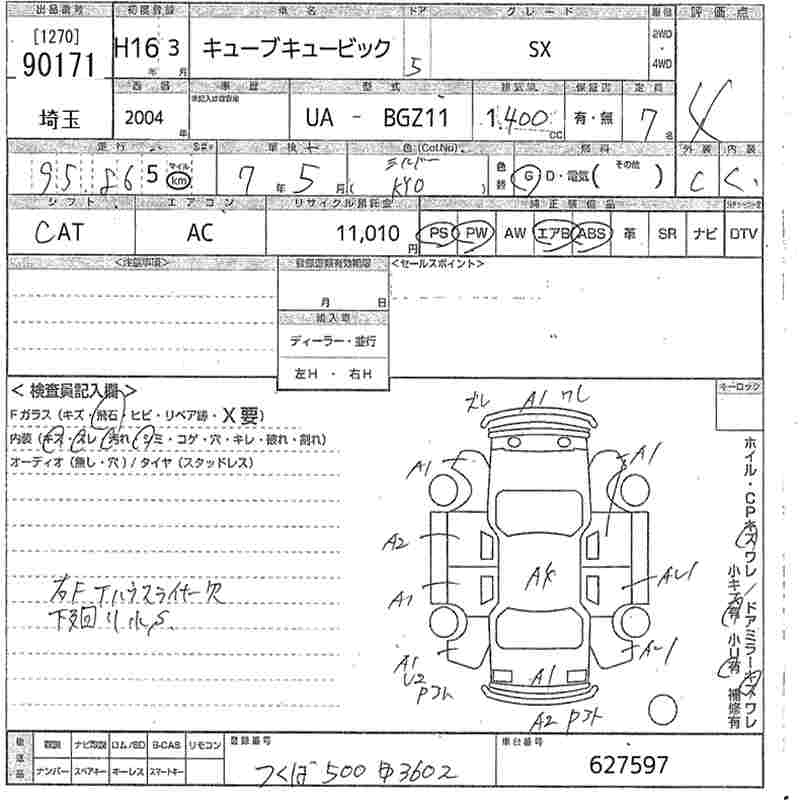 出品番号 初度登録 車名 ドア グレード 駆動 評価点
[1270]
90171
H16 3 キューブキュービック 5 SX 2WD・4WD 4
年 月
西暦 車歴 型式 排気量 保証書 定員
埼玉 2004年 UA - BGZ11 1.400cc 有・無 7名
走行 車検 色(Col.No) 燃料 外装 内装
95,865 マイル km 7年5月 シルバー KY0 色替 G D・電気( その他 ) C C
シフト エアコン リサイクル預託金 純正装備品
CAT AC 11,010円 PS PW AW エアB ABS 革 SR ナビ DTV
<注意事項> 登録書類有効期限 <セールスポイント>
月 日
輸入車
ディーラー・並行
左H・右H
<検査員記入欄> キーロック
Fガラス(キズ・飛石・ヒビ・リペア跡・X要)
内装(キズ・スレ・汚れ・シミ・コゲ・穴・キレ・破れ・割れ)
オーディオ(無し・穴)/タイヤ(スタッドレス)
ズレ A1 ワレ
A1 A1
A2
A1
A1
U2
A1
A2
ホイル・CPキズワレ/ドアミラーキズワレ
小キズ有 小U有 補修有
下回り
後送品 取説 ナビ取説 ロム/SD B-CAS リモコン 登録番号 車台番号
ナンバー スペアキー キーレス スマートキー つくば500 3602 627597